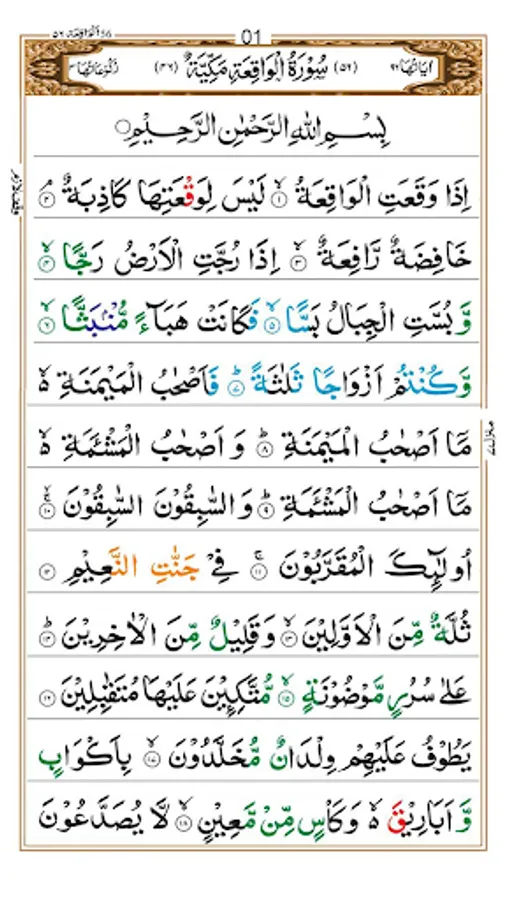 الواقعة ٥٦
01
اٰیَاتُهَا ٩٦ (٥٦) سُوْرَةُ الْوَاقِعَةِ مَكِّیَّةٌ (٤٦) رُكُوْعَاتُهَا ٣
بِسْمِ اللّٰهِ الرَّحْمٰنِ الرَّحِیْمِ
اِذَا وَقَعَتِ الْوَاقِعَةُ ۙ﴿۱﴾ لَیْسَ لِوَقْعَتِهَا كَاذِبَةٌ ۘ﴿۲﴾
خَافِضَةٌ رَّافِعَةٌ ۙ﴿۳﴾ اِذَا رُجَّتِ الْاَرْضُ رَجًّا ۙ﴿۴﴾
وَّ بُسَّتِ الْجِبَالُ بَسًّا ۙ﴿۵﴾ فَكَانَتْ هَبَآءً مُّنْۢبَثًّا ۙ﴿۶﴾
وَّ كُنْتُمْ اَزْوَاجًا ثَلٰثَةً ؕ﴿۷﴾ فَاَصْحٰبُ الْمَیْمَنَةِ ۙ۬
مَاۤ اَصْحٰبُ الْمَیْمَنَةِ ؕ﴿۸﴾ وَ اَصْحٰبُ الْمَشْـَٔمَةِ ۙ۬
مَاۤ اَصْحٰبُ الْمَشْـَٔمَةِ ؕ﴿۹﴾ وَ السّٰبِقُوْنَ السّٰبِقُوْنَ ۚۙ﴿۱۰﴾
اُولٰٓىِٕكَ الْمُقَرَّبُوْنَ ۚ﴿۱۱﴾ فِیْ جَنّٰتِ النَّعِیْمِ ﴿۱۲﴾
ثُلَّةٌ مِّنَ الْاَوَّلِیْنَ ۙ﴿۱۳﴾ وَ قَلِیْلٌ مِّنَ الْاٰخِرِیْنَ ؕ﴿۱۴﴾
عَلٰی سُرُرٍ مَّوْضُوْنَةٍ ۙ﴿۱۵﴾ مُّتَّكِـِٕیْنَ عَلَیْهَا مُتَقٰبِلِیْنَ ﴿۱۶﴾
یَطُوْفُ عَلَیْهِمْ وِلْدَانٌ مُّخَلَّدُوْنَ ۙ﴿۱۷﴾ بِاَكْوَابٍ
وَّ اَبَارِیْقَ ۙ۬ وَ كَاْسٍ مِّنْ مَّعِیْنٍ ۙ﴿۱۸﴾ لَّا یُصَدَّعُوْنَ